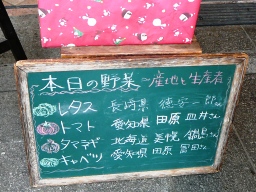 本日の野菜～産地と生産者
レタス 長崎県 徳安一郎さん
トマト 愛知県 田原 皿井さん
タマネギ 北海道 美幌 鍋島さん
キャベツ 愛知県 田原 冨田さん